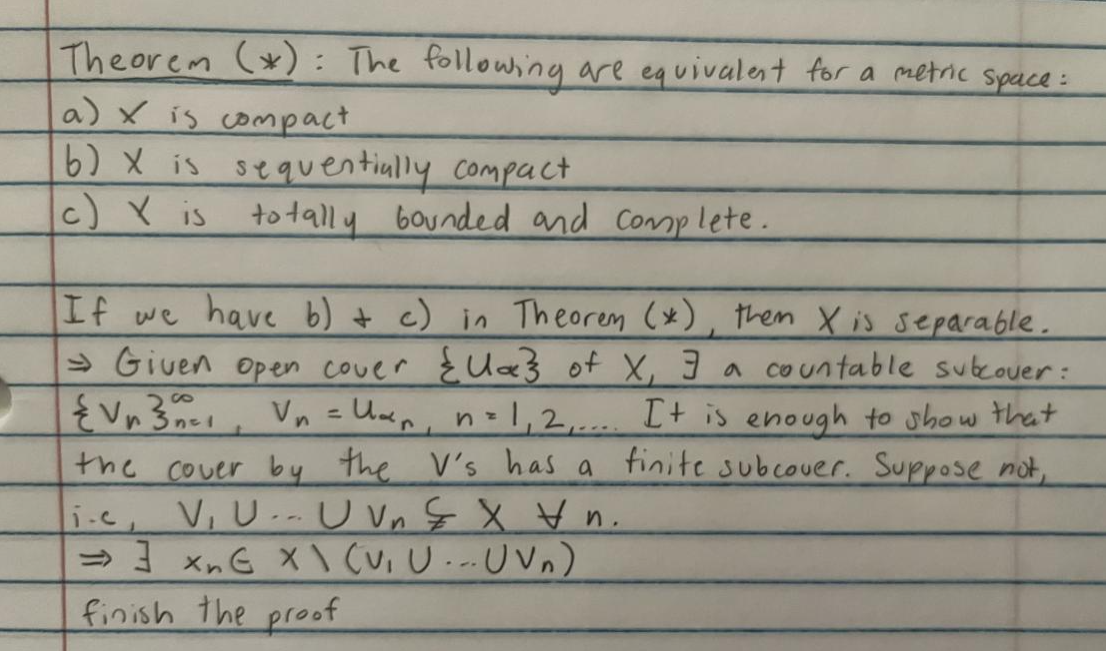 Theorem (*): The following are equivalent for a metric space:
a) X is compact
b) X is sequentially compact
c) X is totally bounded and complete.
If we have b) + c) in Theorem (*), then X is separable.
⇒ Given open cover {Uα} of X, ∃ a countable subcover:
{Vn}∞n=1, Vn = Uαn, n = 1, 2,.... It is enough to show that
the cover by the V's has a finite subcover. Suppose not,
i.e, V₁ ∪ ... ∪ Vn ⊊ X ∀ n.
⇒ ∃ xn ∈ X \ (V₁ ∪ ... ∪ Vn)
finish the proof